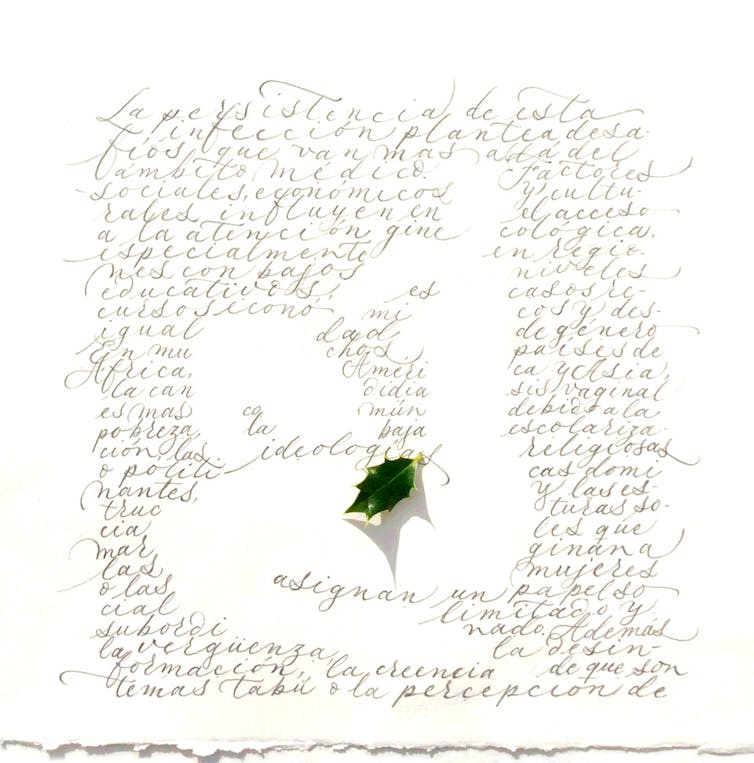 La persistencia de esta
infección plantea desa-
fíos que van mas allá del
ámbito médico. Factores
sociales, económicos y cultu-
rales influyen en el acceso
a la atención gine cológica,
especialmente en regio-
nes con bajos niveles
educativos, es casos re-
cursos econó mi cos y des-
igual dad de género
En mu chos países de
África, Améri ca y Asia,
la can didia sis vaginal
es mas co mún debido a la
pobreza la baja escolariza-
ción las ideologías religiosas
o politi cas domi
nantes, y las es-
truc turas so-
cia les que
mar ginan a
las mujeres
o las asignan un papel so
cial limitado y
subordi nado. Además
la vergüenza, la desin-
formación, la creencia de que son
temas tabú o la percepción de